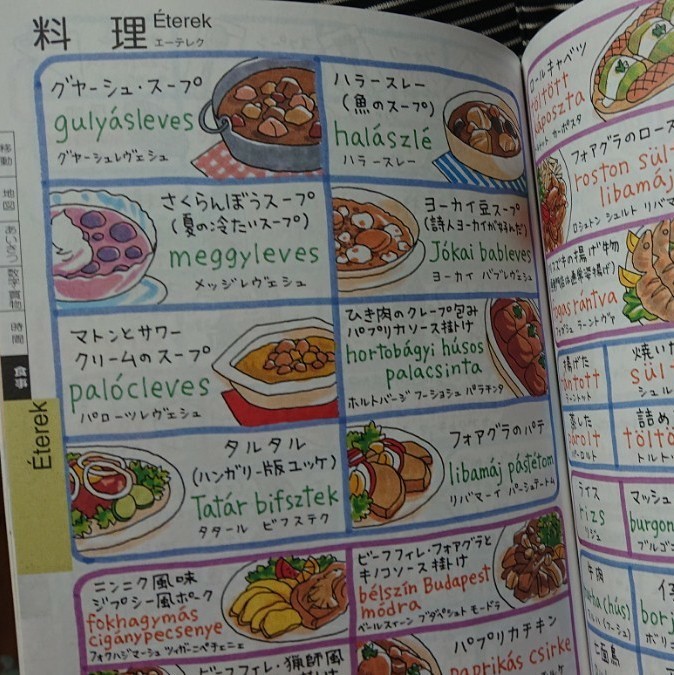 料理 Éterek
エーテレク
グヤーシュ・スープ
gulyásleves
グヤーシュレヴェシュ
ハラースレー
(魚のスープ)
halászlé
ハラースレー
さくらんぼうスープ
(夏の冷たいスープ)
meggyleves
メッジレヴェシュ
ヨーカイ豆スープ
(詩人ヨーカイが好んだ)
Jókai bableves
ヨーカイ バブレヴェシュ
マトンとサワー
クリームのスープ
palócleves
パローツレヴェシュ
ひき肉のクレープ包み
パプリカソース掛け
hortobágyi húsos
palacsinta
ホルトバージ フーショシュ パラチンタ
タルタル
(ハンガリー版ユッケ)
Tatár bifsztek
タタール ビフステク
フォアグラのパテ
libamáj pástétom
リバマーイ パーシュテートム
ニンニク風味
ジプシー風ポーク
fokhagymás
cigánypecsenye
フォクハジマーシュ ツィガーニペチェニェ
ビーフフィレ・フォアグラと
キノコソース掛け
bélszín Budapest
módra
ベールスィーン ブダペシュト モードラ
ビーフフィレ・猟師風
パプリカチキン
paprikás csirke
移動
地図
あいさつ
数字買物
時間
食事
Éterek
ールキャベツ
töltött
káposzta
フォアグラのロース
roston sült
libamáj
ロシュトン シュルト リバマ
の揚げ物
rántva
揚げた
焼いた
sült
シュル
蒸した
párolt
パーロルト
詰め
töltö
トルト
ライス
rizs
リジュ
マッシュ
burgon
ブルゴニ
牛肉
(hús)
borj
ボリ